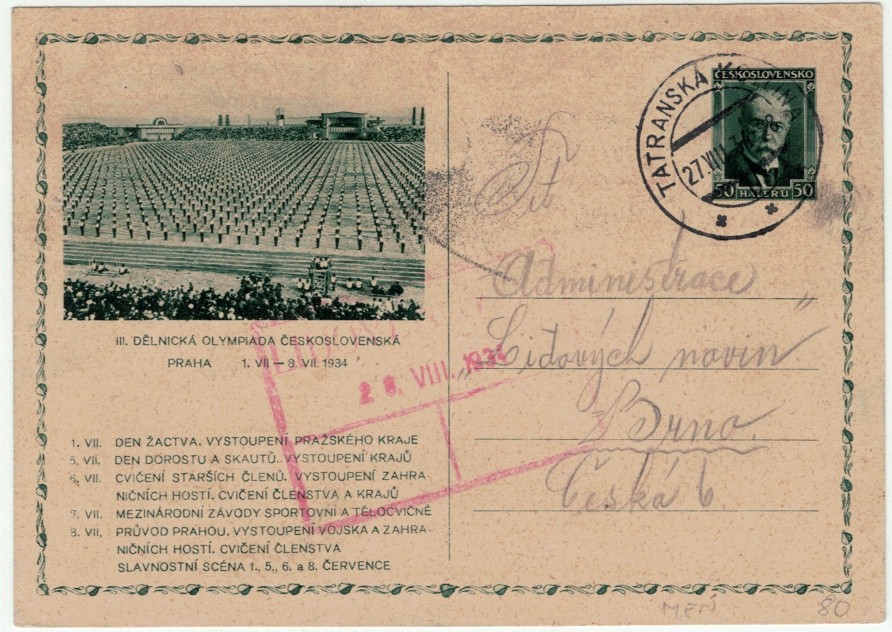 ČESKOSLOVENSKO
50 HALÉŘŮ 50
TATRANSKÁ
27.VII.
III. DĚLNICKÁ OLYMPIADA ČESKOSLOVENSKÁ
PRAHA 1. VII — 8. VII. 1934
1. VII. DEN ŽACTVA. VYSTOUPENÍ PRAŽSKÉHO KRAJE
5. VII. DEN DOROSTU A SKAUTŮ. VYSTOUPENÍ KRAJŮ
6. VII. CVIČENÍ STARŠÍCH ČLENŮ. VYSTOUPENÍ ZAHRA-
NIČNÍCH HOSTÍ. CVIČENÍ ČLENSTVA A KRAJŮ
7. VII. MEZINÁRODNÍ ZÁVODY SPORTOVNÍ A TĚLOCVIČNÉ
8. VII. PRŮVOD PRAHOU. VYSTOUPENÍ VOJSKA A ZAHRA-
NIČNÍCH HOSTÍ. CVIČENÍ ČLENSTVA
SLAVNOSTNÍ SCÉNA 1., 5., 6. a 8. ČERVENCE
28. VIII. 1934
Tit
Administrace
„Lidových novin"
Brno.
Česká 6
MEN
80